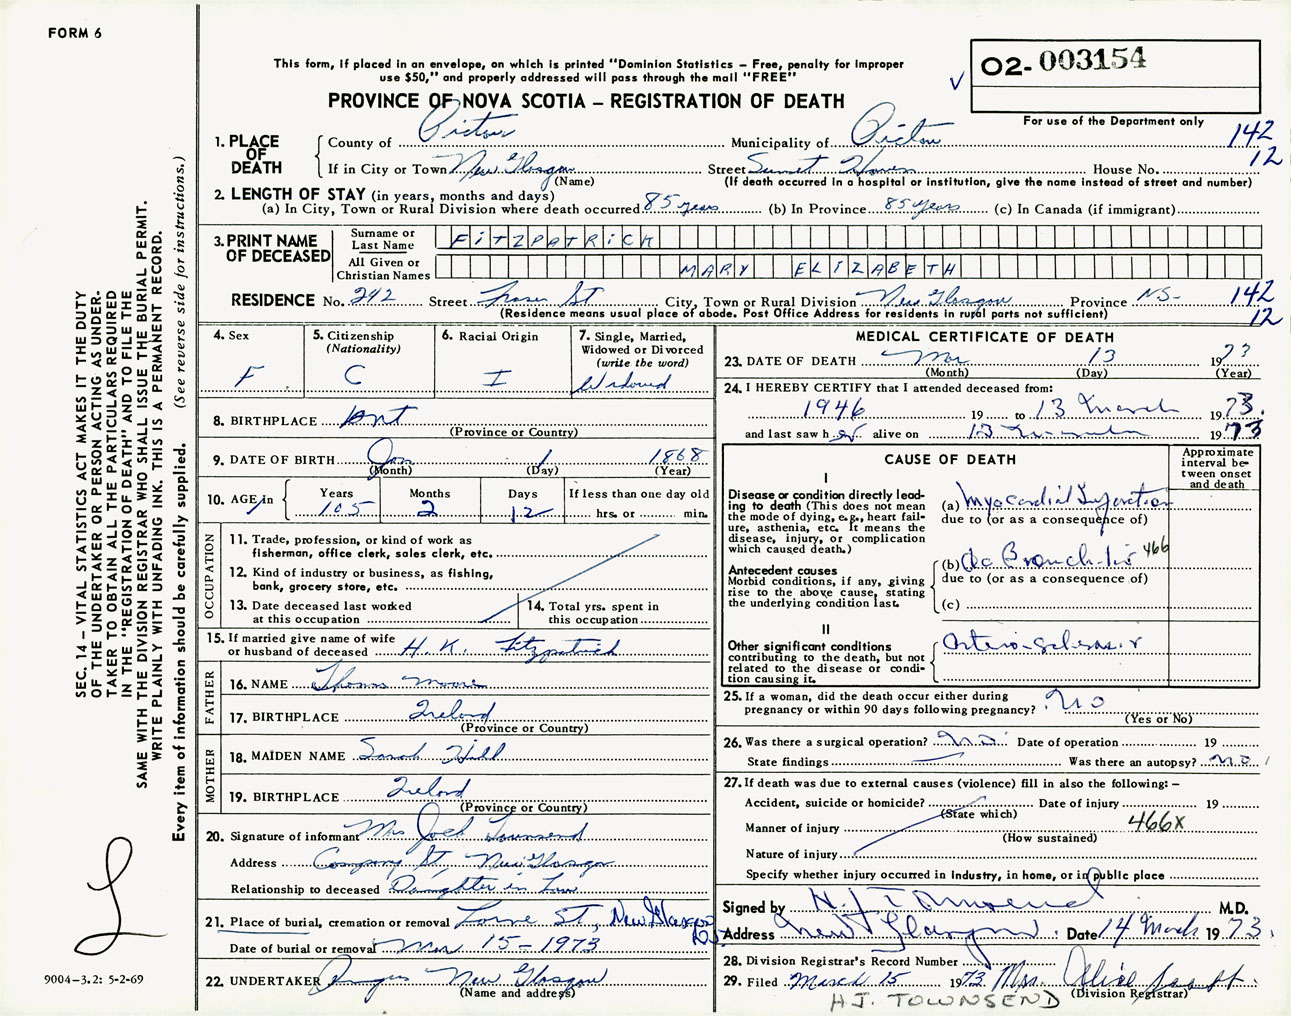 FORM 6
This form, if placed in an envelope, on which is printed "Dominion Statistics – Free, penalty for improper
use $50," and properly addressed will pass through the mail "FREE"
PROVINCE OF NOVA SCOTIA – REGISTRATION OF DEATH
02- 003154
For use of the Department only
1. PLACE OF DEATH
County of Pictou Municipality of Pictou 142
If in City or Town New Glasgow Street Sunset Haven House No. 12
(Name) (If death occurred in a hospital or institution, give the name instead of street and number)
2. LENGTH OF STAY (in years, months and days)
(a) In City, Town or Rural Division where death occurred 85 years (b) In Province 85 years (c) In Canada (if immigrant)
3. PRINT NAME OF DECEASED
Surname or Last Name FITZPATRICK
All Given or Christian Names MARY ELIZABETH
RESIDENCE No. 242 Street Fraser St City, Town or Rural Division New Glasgow Province NS- 142
(Residence means usual place of abode. Post Office Address for residents in rural parts not sufficient) 12
4. Sex
F
5. Citizenship (Nationality)
C
6. Racial Origin
I
7. Single, Married, Widowed or Divorced (write the word)
Widowed
8. BIRTHPLACE Ont
(Province or Country)
9. DATE OF BIRTH Jan 1 1868
(Month) (Day) (Year)
10. AGE in
Years 105 Months 2 Days 12 If less than one day old
hrs. or min.
OCCUPATION
11. Trade, profession, or kind of work as
fisherman, office clerk, sales clerk, etc.
12. Kind of industry or business, as fishing,
bank, grocery store, etc.
13. Date deceased last worked
at this occupation
14. Total yrs. spent in
this occupation
15. If married give name of wife
or husband of deceased H. K. Fitzpatrick
FATHER
16. NAME Thomas Moore
17. BIRTHPLACE Ireland
(Province or Country)
MOTHER
18. MAIDEN NAME Sarah Hill
19. BIRTHPLACE Ireland
(Province or Country)
20. Signature of informant Mrs Jack Townsend
Address Company St, New Glasgow
Relationship to deceased Daughter in Law
21. Place of burial, cremation or removal Lorne St., New Glasgow NS
Date of burial or removal Mar 15 - 1973
22. UNDERTAKER Angus New Glasgow
(Name and address)
MEDICAL CERTIFICATE OF DEATH
23. DATE OF DEATH Mar 13 1973
(Month) (Day) (Year)
24. I HEREBY CERTIFY that I attended deceased from:
1946 19 to 13 March 1973.
and last saw h er alive on 13 March 1973
CAUSE OF DEATH
Approximate interval between onset and death
I
Disease or condition directly leading to death (This does not mean the mode of dying, e.g., heart failure, asthenia, etc. It means the disease, injury, or complication which caused death.)
(a) Myocardial Infarction
due to (or as a consequence of)
Antecedent causes
Morbid conditions, if any, giving rise to the above cause, stating the underlying condition last.
(b) Ac Bronchitis 466
due to (or as a consequence of)
(c)
II
Other significant conditions
contributing to the death, but not related to the disease or condition causing it.
Arterio-sclerosis
25. If a woman, did the death occur either during
pregnancy or within 90 days following pregnancy? No
(Yes or No)
26. Was there a surgical operation? no Date of operation 19
State findings Was there an autopsy? no
27. If death was due to external causes (violence) fill in also the following: –
Accident, suicide or homicide? Date of injury 19
(State which)
Manner of injury 466X
(How sustained)
Nature of injury
Specify whether injury occurred in industry, in home, or in public place
Signed by H. J. Townsend M.D.
Address New Glasgow. Date 14 March 1973.
28. Division Registrar's Record Number
29. Filed March 15 1973 Mrs. Alice
(Division Registrar)
H J. TOWNSEND
SEC. 14 – VITAL STATISTICS ACT MAKES IT THE DUTY
OF THE UNDERTAKER OR PERSON ACTING AS UNDER-
TAKER TO OBTAIN ALL THE PARTICULARS REQUIRED
IN THE "REGISTRATION OF DEATH" AND TO FILE THE
SAME WITH THE DIVISION REGISTRAR WHO SHALL ISSUE THE BURIAL PERMIT.
WRITE PLAINLY WITH UNFADING INK. THIS IS A PERMANENT RECORD.
Every item of information should be carefully supplied. (See reverse side for instructions.)
9004–3.2: 5-2-69